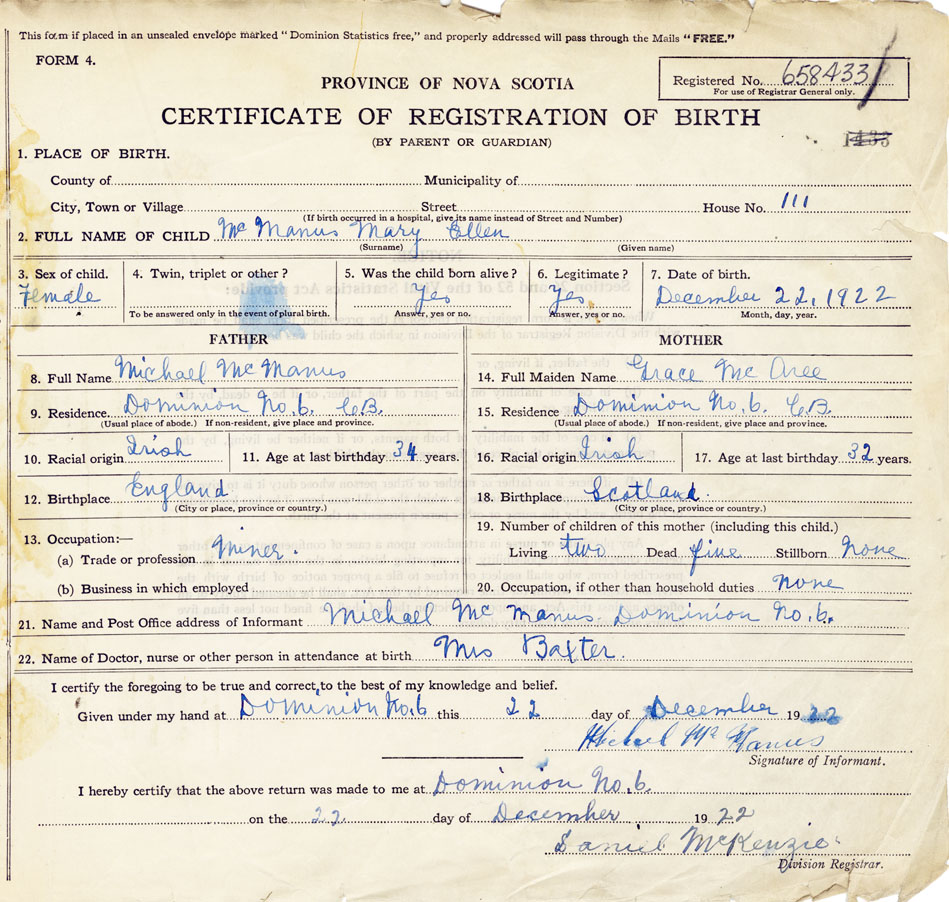 This form if placed in an unsealed envelope marked "Dominion Statistics free," and properly addressed will pass through the Mails "FREE."
FORM 4.
Registered No. 658433
For use of Registrar General only.
PROVINCE OF NOVA SCOTIA
CERTIFICATE OF REGISTRATION OF BIRTH
(BY PARENT OR GUARDIAN)
1. PLACE OF BIRTH.
County of Municipality of
City, Town or Village Street House No. 111
(If birth occurred in a hospital, give its name instead of Street and Number)
2. FULL NAME OF CHILD Mc Manus Mary Ellen
(Surname) (Given name)
3. Sex of child. 4. Twin, triplet or other? 5. Was the child born alive? 6. Legitimate? 7. Date of birth.
Female Yes Yes December 22, 1922
To be answered only in the event of plural birth. Answer, yes or no. Answer, yes or no. Month, day, year.
FATHER MOTHER
8. Full Name Michael Mc Manus 14. Full Maiden Name Grace Mc Aree
9. Residence. Dominion No. 6. C.B. 15. Residence Dominion No. 6. C.B.
(Usual place of abode.) If non-resident, give place and province. (Usual place of abode.) If non-resident, give place and province.
10. Racial origin Irish 11. Age at last birthday 34 years. 16. Racial origin Irish 17. Age at last birthday 32 years.
12. Birthplace England 18. Birthplace Scotland.
(City or place, province or country.) (City or place, province or country.)
13. Occupation:— 19. Number of children of this mother (including this child.)
(a) Trade or profession Miner. Living two Dead five Stillborn None
(b) Business in which employed 20. Occupation, if other than household duties None
21. Name and Post Office address of Informant Michael Mc Manus. Dominion No. 6.
22. Name of Doctor, nurse or other person in attendance at birth Mrs Baxter.
I certify the foregoing to be true and correct, to the best of my knowledge and belief.
Given under my hand at Dominion No. 6 this 22 day of December 1922
Michael Mc Manus
Signature of Informant.
I hereby certify that the above return was made to me at Dominion No. 6.
on the 22 day of December 1922
Daniel McKenzie
Division Registrar.